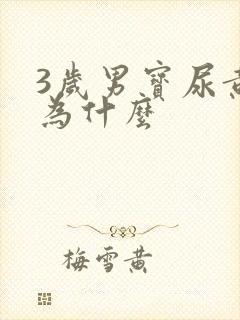 3歲男寶尿黃
為什麼
梅雪黃